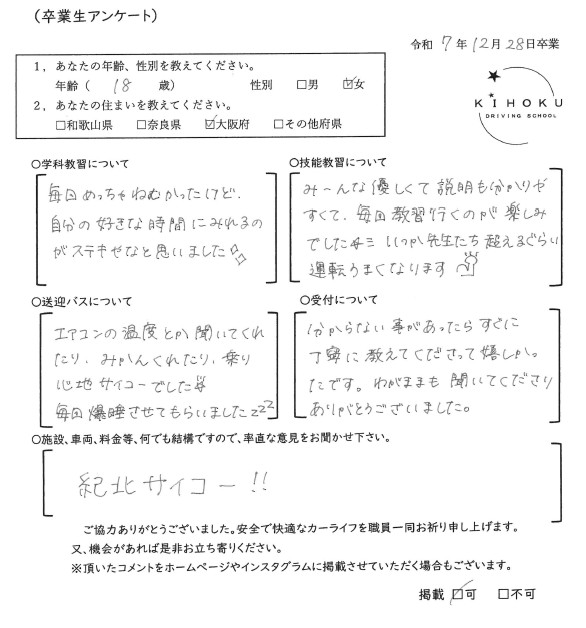 (卒業生アンケート)
令和 7年12月28日卒業
1，あなたの年齢、性別を教えてください。
年齢（ 18 歳） 性別 □男 ☑女
2，あなたの住まいを教えてください。
□和歌山県 □奈良県 ☑大阪府 □その他府県
KIHOKU
DRIVING SCHOOL
○学科教習について
毎回めっちゃねむかったけど、
自分の好きな時間にみれるの
がステキやなと思いました
○技能教習について
み～んな優しくて説明も分かりや
すくて、毎回教習行くのが楽しみ
でした いつか先生たち超えるぐらい
運転うまくなります
○送迎バスについて
エアコンの温度とか聞いてくれ
たり、みかんくれたり、乗り
心地サイコーでした
毎回爆睡させてもらいましたzzz
○受付について
分からない事があったらすぐに
丁寧に教えてくださって嬉しかっ
たです。わがままも聞いてくださり
ありがとうございました。
○施設、車両、料金等、何でも結構ですので、率直な意見をお聞かせ下さい。
紀北サイコー!!
ご協力ありがとうございました。安全で快適なカーライフを職員一同お祈り申し上げます。
又、機会があれば是非お立ち寄りください。
※頂いたコメントをホームページやインスタグラムに掲載させていただく場合もございます。
掲載 ☑可 □不可